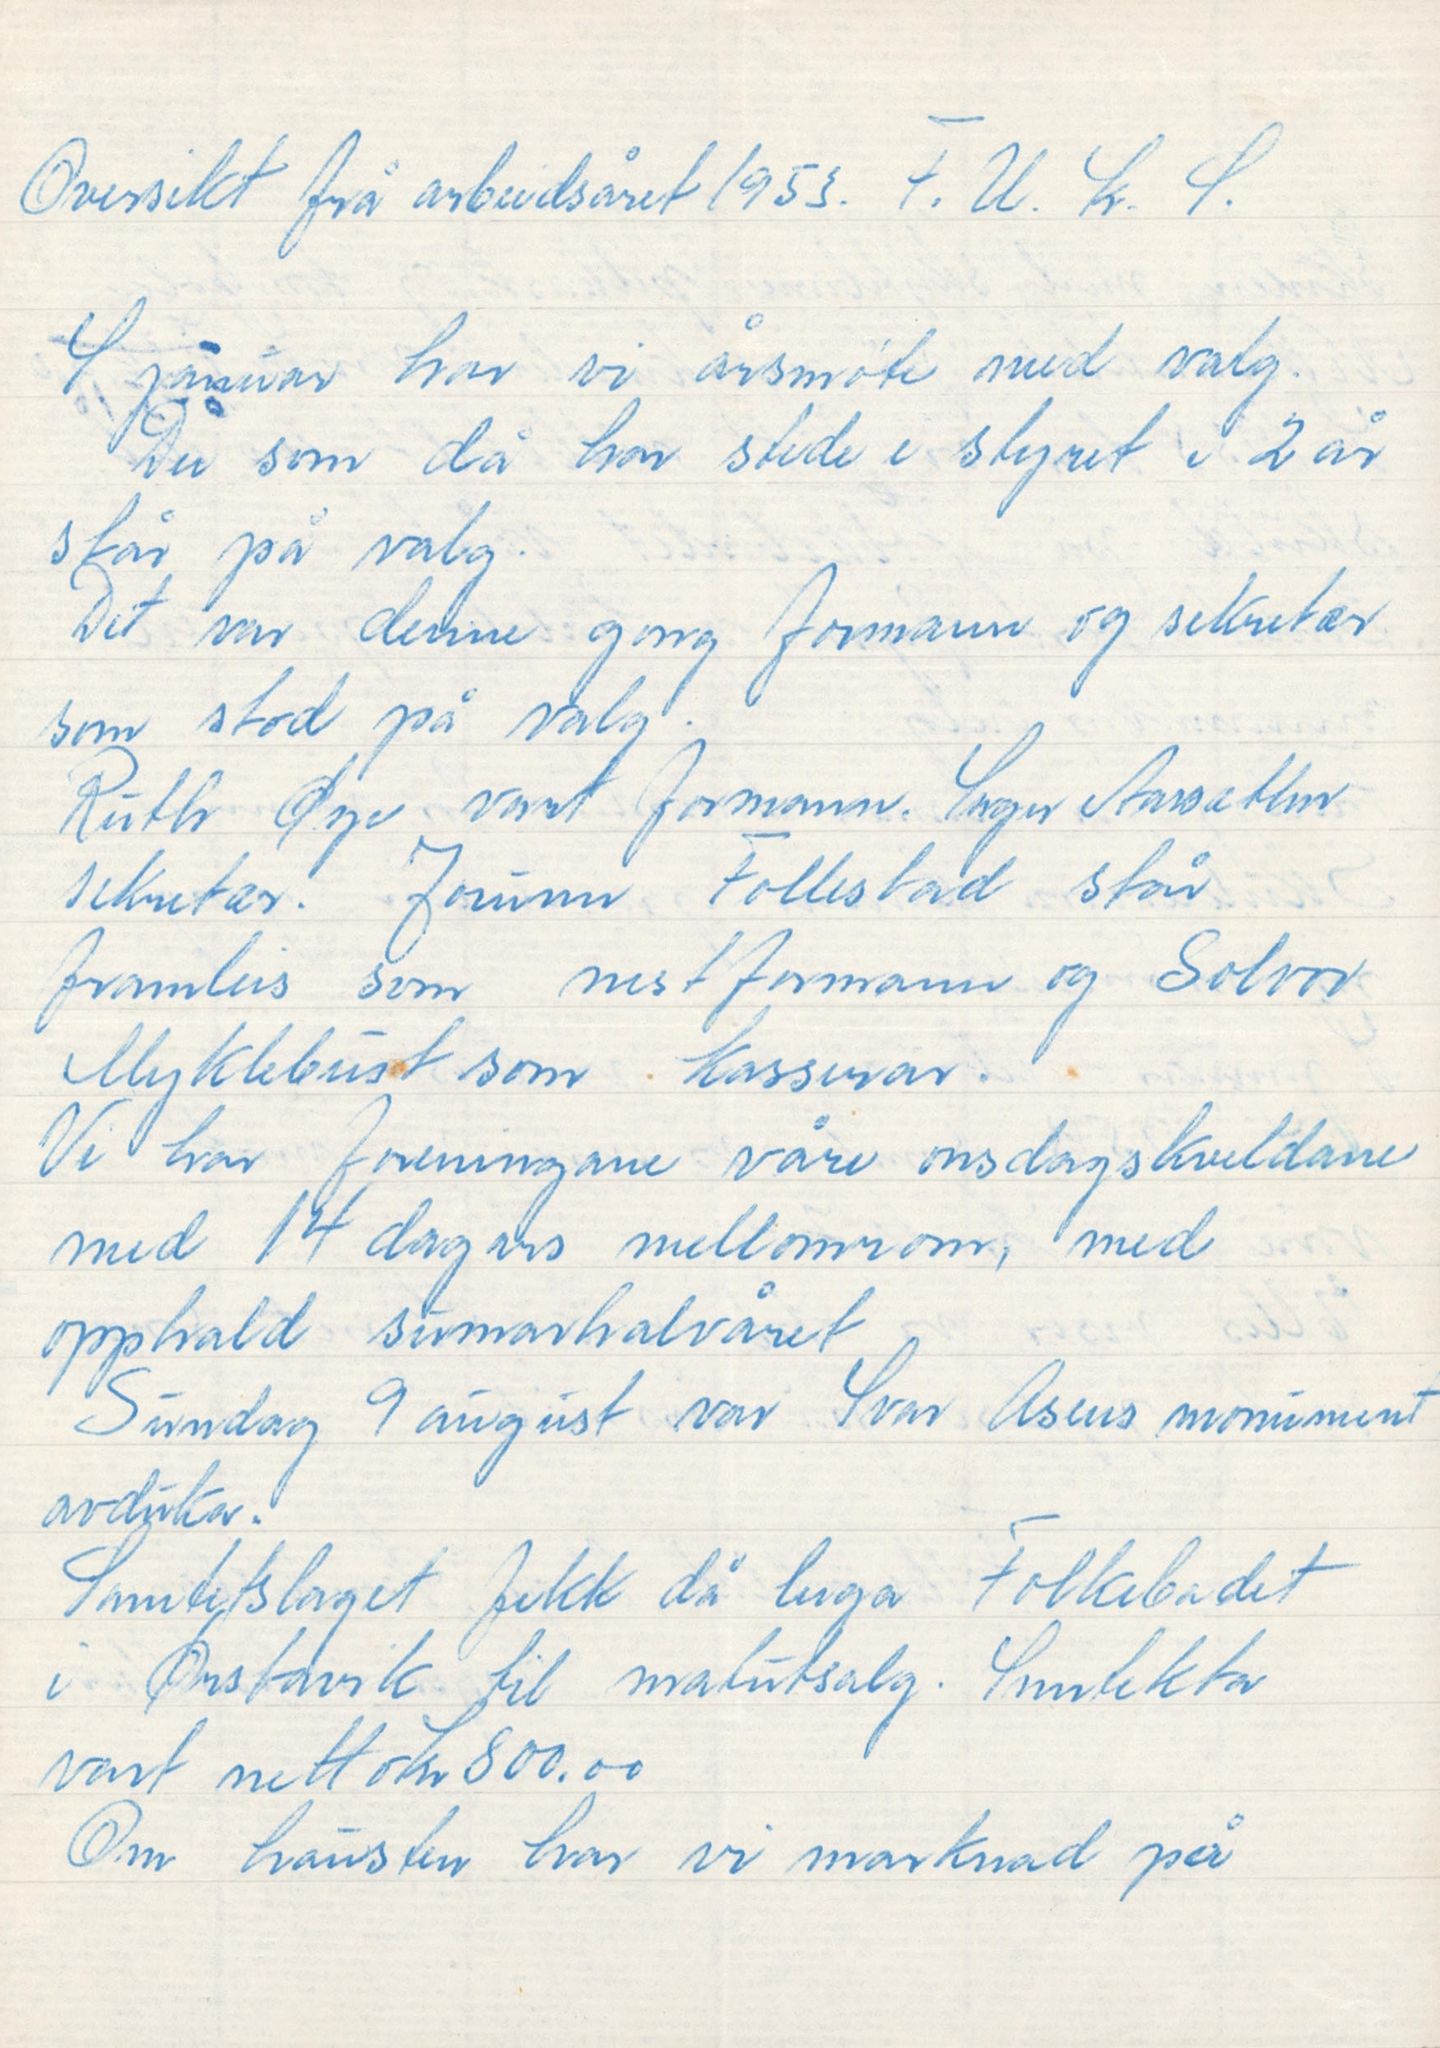 Oversikt frå arbeidsåret 1953. F. U. K. S.
I januar har vi årsmøte med valg.
Dei som då har stede i styret i 2 år
står på valg.
Det var denne gong formann og sekretær
som stod på valg.
Ruth Øye vart formann. Inger Aarsæther
sekretær. Jorunn Follestad står
framleis som nestformann og Solvor
Myklebust som kasserar.
Vi har foreningane våre onsdagskveldane
med 14 dagars mellomrom, med
opphald sumarhalvåret
Sundag 9 august var Ivar Asens monument
avduka.
Samtefslaget fekk då leiga Folkebadet
i Ørstavik til matutsalg. Inntekta
vart netto kr 800.00
Om hausten har vi marknad på